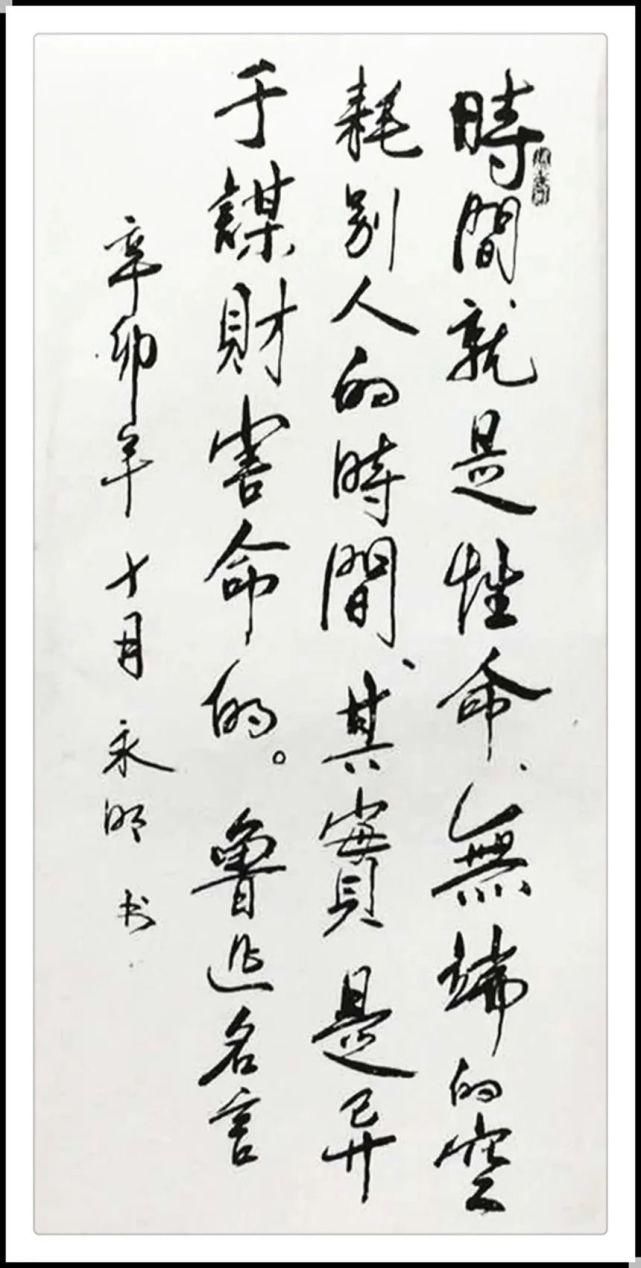 時間就是性命、無端的空
耗别人的時間、其實是异
于謀財害命的。魯迅名言
辛卯年十月永明书